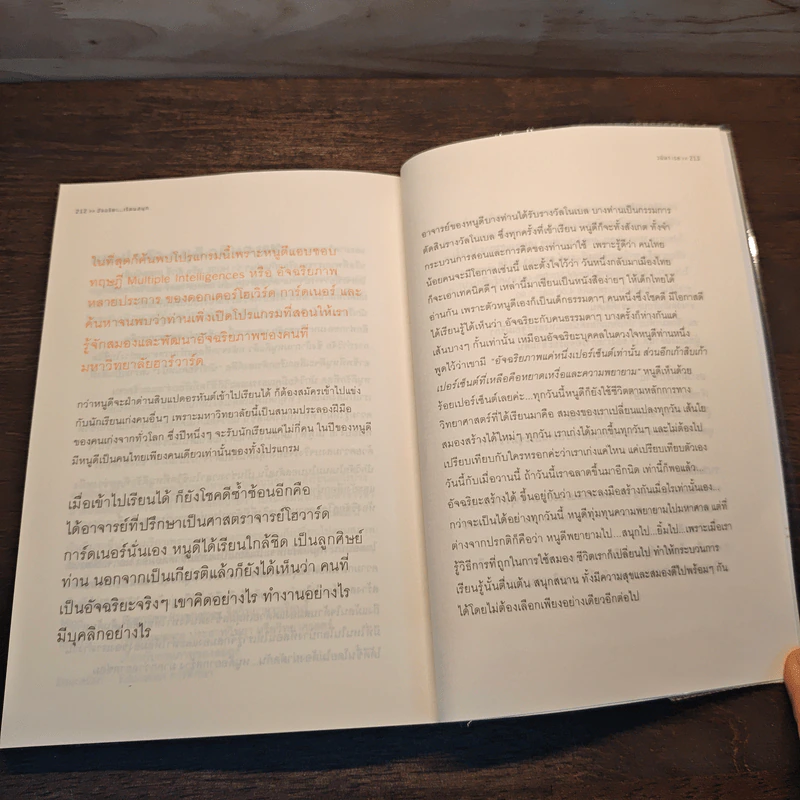 212 >> อัจฉริยะ...เรียนสนุก
ในที่สุดก็ค้นพบโปรแกรมนี้เพราะหนูดีแอบชอบ
ทฤษฎี Multiple Intelligences หรือ อัจฉริยภาพ
หลายประการ ของดอกเตอร์โฮเวิร์ด การ์ดเนอร์ และ
ค้นหาจนพบว่าท่านเพิ่งเปิดโปรแกรมที่สอนให้เรา
รู้จักสมองและพัฒนาอัจฉริยภาพของคนที่
มหาวิทยาลัยฮาร์วาร์ด
กว่าหนูดีจะฝ่าด่านสิบแปดอรหันต์เข้าไปเรียนได้ ก็ต้องสมัครเข้าไปแข่ง
กับนักเรียนเก่งคนอื่นๆ เพราะมหาวิทยาลัยนี้เป็นสนามประลองฝีมือ
ของคนเก่งจากทั่วโลก ซึ่งปีหนึ่งๆ จะรับนักเรียนแค่ไม่กี่คน ในปีของหนูดี
มีหนูดีเป็นคนไทยเพียงคนเดียวเท่านั้นของทั้งโปรแกรม
เมื่อเข้าไปเรียนได้ ก็ยังโชคดีซ้ำซ้อนอีกคือ
ได้อาจารย์ที่ปรึกษาเป็นศาสตราจารย์โฮวาร์ด
การ์ดเนอร์นั่นเอง หนูดีได้เรียนใกล้ชิด เป็นลูกศิษย์
ท่าน นอกจากเป็นเกียรติแล้วก็ยังได้เห็นว่า คนที่
เป็นอัจฉริยะจริงๆ เขาคิดอย่างไร ทำงานอย่างไร
มีบุคลิกอย่างไร
213
อาจารย์ของหนูดีบางท่านได้รับรางวัลโนเบล บางท่านเป็นกรรมการ
ตัดสินรางวัลโนเบล ซึ่งทุกครั้งที่เข้าเรียน หนูดีก็จะทั้งสังเกต ทั้งจำ
กระบวนการสอนและการคิดของท่านมาใช้ เพราะรู้ดีว่า คนไทย
น้อยคนจะมีโอกาสเช่นนี้ และตั้งใจไว้ว่า วันหนึ่งกลับมาเมืองไทย
ก็จะเอาเทคนิคดีๆ เหล่านี้มาเขียนเป็นหนังสือง่ายๆ ให้เด็กไทยได้
อ่านกัน เพราะตัวหนูดีเองก็เป็นเด็กธรรมดาๆ คนหนึ่งซึ่งโชคดี มีโอกาสดี
ได้เรียนรู้ได้เห็นว่า อัจฉริยะกับคนธรรมดาๆ บางครั้งก็ห่างกันแค่
เส้นบางๆ กันเท่านั้น เหมือนอัจฉริยะบุคคลในดวงใจหนูดีท่านหนึ่ง
พูดไว้ว่าเขามี “อัจฉริยภาพแค่หนึ่งเปอร์เซ็นต์เท่านั้น ส่วนอีกเก้าสิบเก้า
เปอร์เซ็นต์ที่เหลือคือหยาดเหงื่อและความพยายาม” หนูดีเห็นด้วย
ร้อยเปอร์เซ็นต์เลยค่ะ...ทุกวันนี้หนูดีก็ยังใช้ชีวิตตามหลักการทาง
วิทยาศาสตร์ที่ได้เรียนมาคือ สมองของเราเปลี่ยนแปลงทุกวัน เส้นใย
สมองสร้างได้ใหม่ๆ ทุกวัน เราเก่งได้มากขึ้นทุกวันๆ และไม่ต้องไป
เปรียบเทียบกับใครหรอกค่ะว่าเราเก่งแค่ไหน แค่เปรียบเทียบตัวเอง
วันนี้กับเมื่อวานนี้ ถ้าวันนี้เราฉลาดขึ้นมาอีกนิด เท่านี้ก็พอแล้ว...
อัจฉริยะสร้างได้ ขึ้นอยู่กับว่า เราจะลงมือสร้างกันเมื่อไรเท่านั้นเอง...
กว่าจะเป็นได้อย่างทุกวันนี้ หนูดีทุ่มทุนความพยายามไปมหาศาล แต่ที่
ต่างจากปรกติก็คือว่า หนูดีพยายามไป...สนุกไป...ยิ้มไป...เพราะเมื่อเรา
รู้วิธีการที่ถูกในการใช้สมอง ชีวิตเราก็เปลี่ยนไป ทำให้กระบวนการ
เรียนรู้นั้นตื่นเต้น สนุกสนาน ทั้งมีความสุขและสมองดีไปพร้อมๆ กัน
ได้โดยไม่ต้องเลือกเพียงอย่างเดียวอีกต่อไป